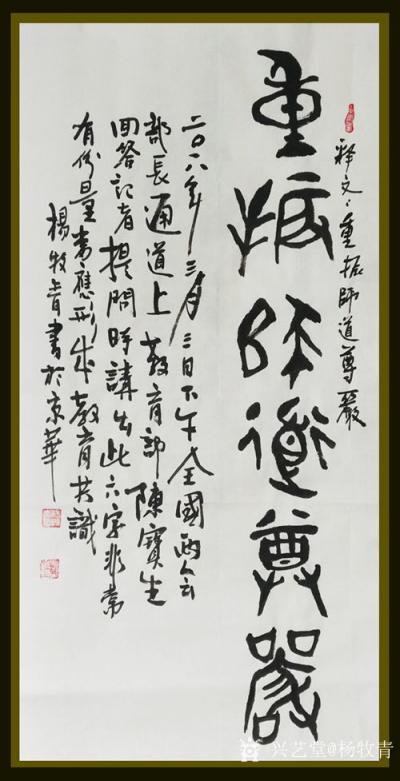 釋文、重振師道尊嚴
重振師道尊嚴
二〇一八年三月三日下午全國两会
部長通道上教育部陳寶生
回答記者提問时講出此六字非常
有份量當應形成教育共識
楊牧青書於京華
兴艺堂@杨牧青